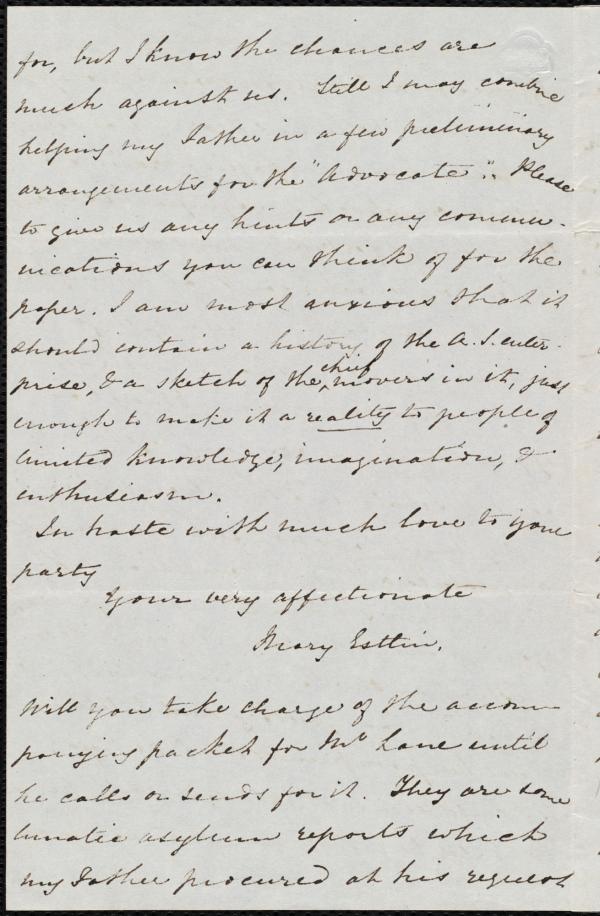 for, but I know the chances are
much against us. Still I may combine
helping my Father in a few preliminary
arrangements for the "Advocate". Please
to give us any hints or any commu-
nications you can think of for the
paper. I am most anxious that it
should contain a history of the A. S. enter-
prise, & a sketch of the chief movers in it, just
enough to make it a reality to people of
limited knowledge, imagination, &
enthusiasm.
In haste with much love to your
party
Your very affectionate
Mary Estlin.
Will you take charge of the accom-
panying packet for Mr Lane until
he calls or sends for it. They are some
lunatic asylum reports which
my Father procured at his request